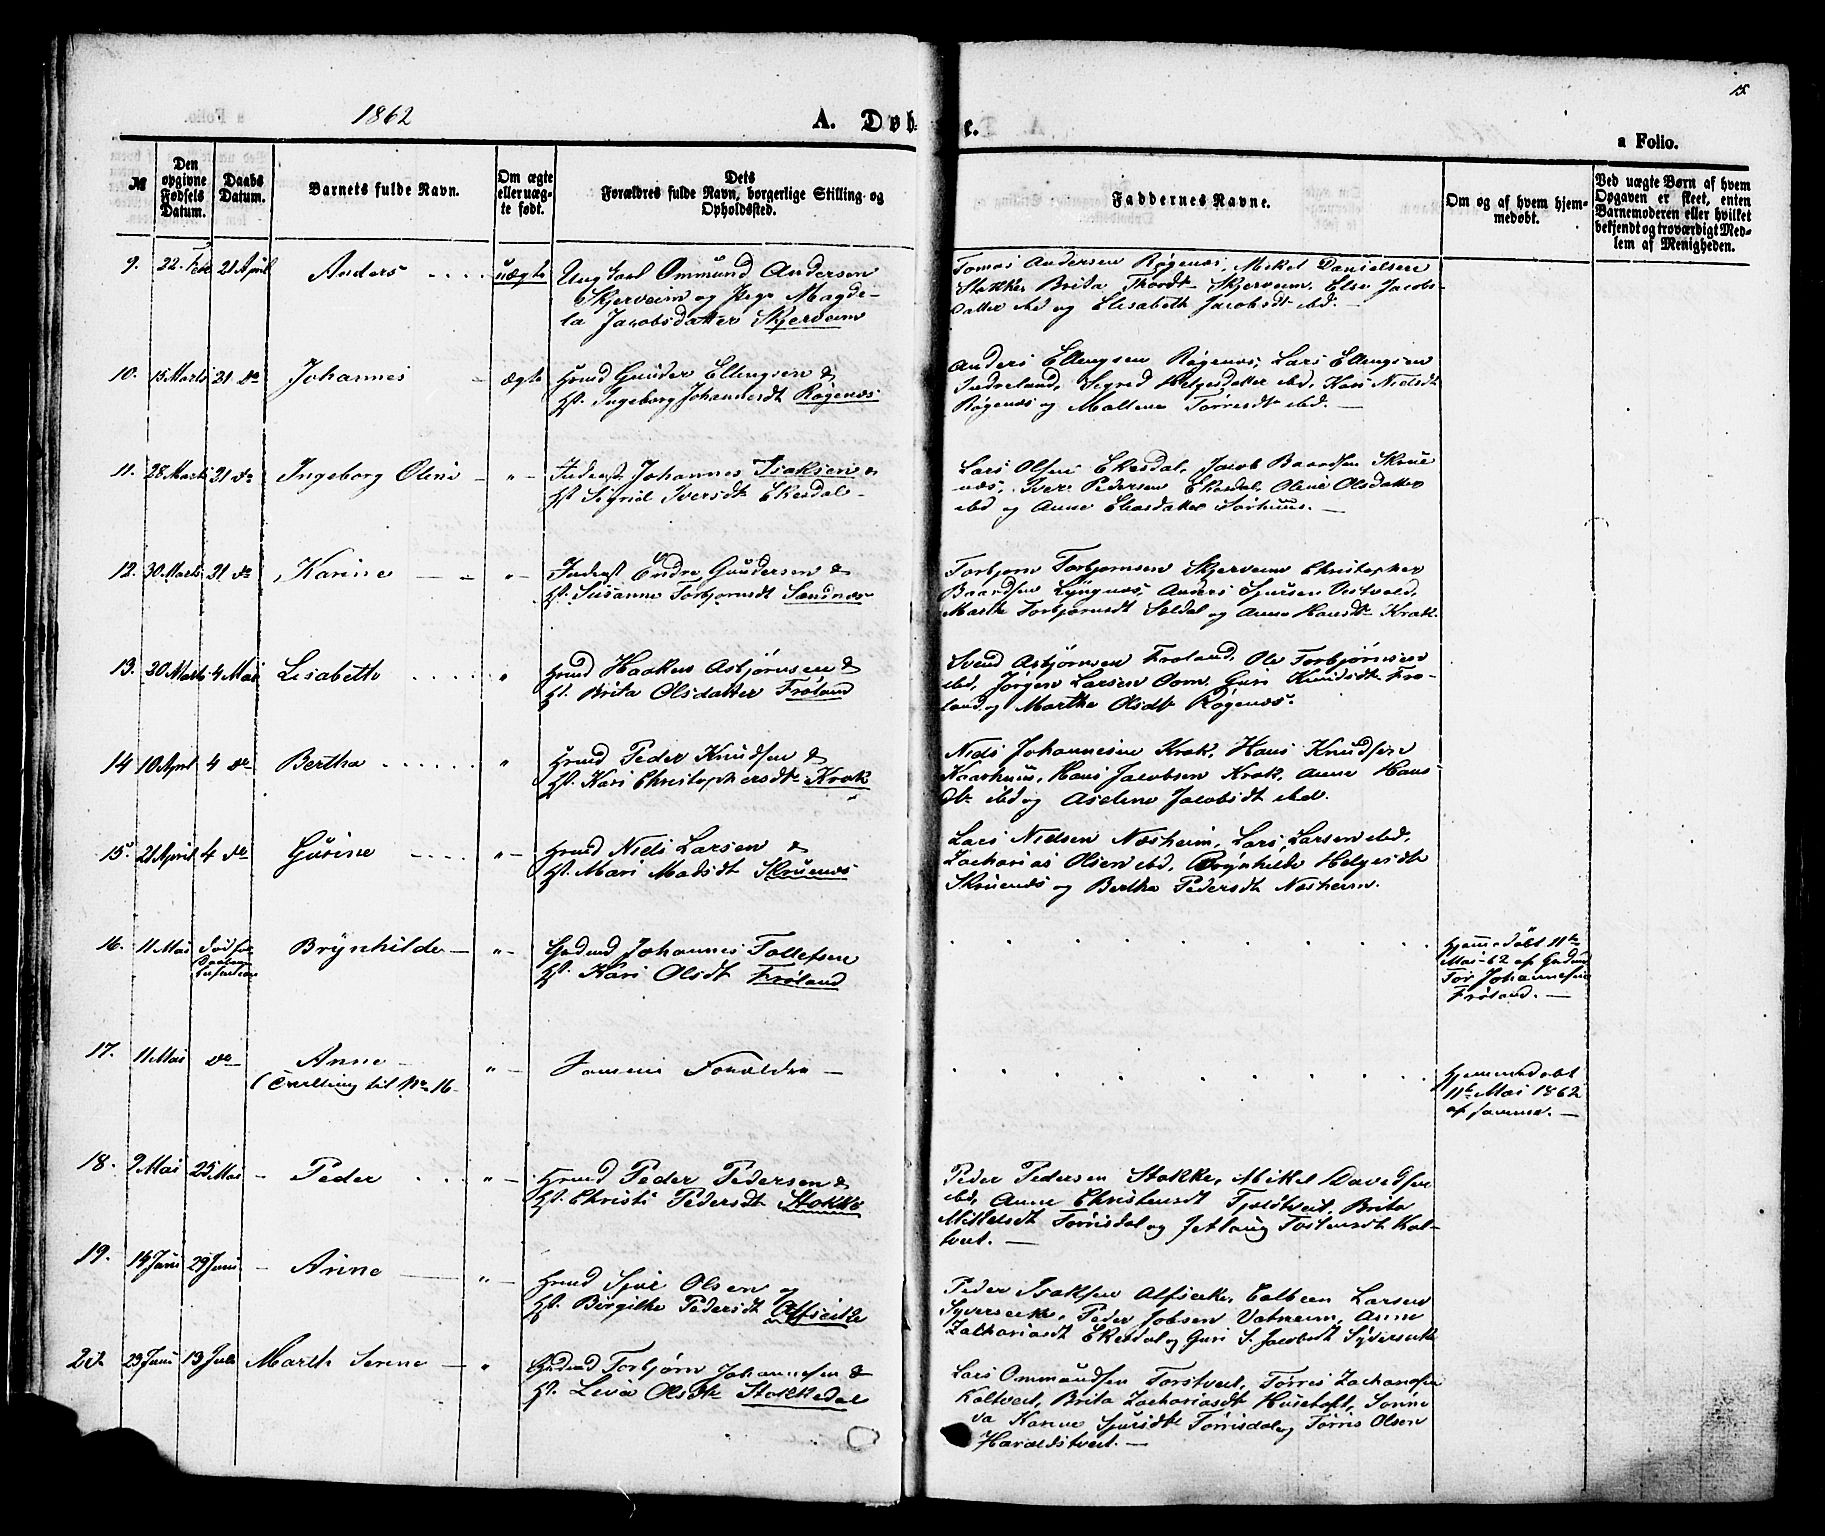 15
1862
A. Døb-
e.
a Folio.
№
Den opgivne Fødsels Datum.
Daabs Datum.
Barnets fulde Navn.
Om ægte eller uæg- te født.
Dets Forældres fulde Navn, borgerlige Stilling og Opholdssted.
Faddernes Navne.
Om og af hvem hjem- medøbt.
Ved uægte Børn af hvem Opgaven er skeet, enten Barnemoderen eller hvilket bekjendt og troværdigt Med- lem af Menigheden.
9. 22. Febr 21 April Anders uægte Ungkarl Ommund Andersen
Skjerveim og Pige Magde-
la Jacobsdatter Skjerveim
Tomas Andersen Røgenæs, Mikel Danielsen
Stokke Brita Thordt Skjerveim, Else Jacobs-
datter ibd og Elisabeth Jacobsdt ibd. —
10. 15 Marts 21 do Johannes ægte Hmd Gunder Ellingsen &
H. Ingeborg Johannesdt Røgenæs
Anders Ellingsen Røgenæs, Lars Ellingsen
Indreland, Sigrid Helgesdatter ibd, Kari Nielsdt
Røgenæs og Maltene Tørresdt ibd. —
11. 28 Marts 21 do Ingeborg Oline " Inderst Johannes Isaksen &
H. Sigrid Iversdt Ekesdal
Lars Olsen Ekesdal, Jacob Baardsen Skrue
næs, Iver Pedersen Ekesdal, Oline Olsdatter
ibd og Anne Eliasdatter Aarhuus. —
12. 30 Marts 21 do Karine " Inderst Endre Gundersen &
H. Susanne Torbjørnsdt Sandnæs
Torbjørn Torbjørnsen Skjerveim Christopher
Baardsen Lyngnæs, Anders Sjursen Vestvold,
Marth Torbjørnsdt Seldal og Anna Hansdt Krak.
13. 20 Marts 4 Mai Lisabeth " Hmd Haaken Asbjørnsen &
H. Brita Olsdatter Frøland
Svend Asbjørnsen Frøland, Ole Torbjørnsen
ibd, Jørgen Larsen Oom, Guri Knudsdt Frø-
land og Marthe Olsdt Røgenæs.
14 10 April 4 do Bertha " Hmd Peder Knudsen &
H. Kari Christophersdt Krak
Niels Johannesen Krak, Hans Knudsen
Kaarhuus, Hans Jacobsen Krak, Anne Hans-
dt ibd og Aselene Jacobsdt ibd.
15. 21 April 4 do Gurine " Hmd Niels Larsen &
H. Mari Madsdt Skruenæs
Lars Nielsen Næsheim, Lars Larsen ibd,
Zacharias Olsen ibd, Brynhilde Helgesdt
Skruenæs og Bertha Pedersdt Næsheim.
16. 11 Mai Død før Brynhilde " Grdmd Johannes Tollefsen
H. Kari Olsdt Frøland
Hjemmedøbt 11te
Mai 62 af Grdmd
Tor Johannesen
Frøland. —
17. 11 Mai do Anne
(Tvilling til No 16 " Samme Forældre —
Hjemmedøbt
11te Mai 1862
af samme. —
18. 2 Mai 25 Mai Peder " Hmd Peder Pedersen &
H. Christi Pedersdt Stokke
Peder Pedersen Stokke, Mikel Davidsen
ibd, Anne Christensdt Fjeldtveit, Brita
Mikkelsdt Tørrisdal og Jetlaug Tostensdt Kal-
tveit. —
19. 14 Juni 29 Juni Anne " Hmd Sjur Olsen og
H. Birgithe Pedersdt Alfseike
Peder Isaksen Alfseike, Colbein Larsen
Syverseike, Peder Jobsen Vatneim, Anne
Zachariasdt Ekesdal og Guri S. Jacobsdt Syverseike
20 23 Juni 13 Juli Marth Serine " Grdmd Torbjørn Johannesen &
H. Liva Olsdt Stokkedal
Lars Ommundsen Torstveit, Tørres Zachariasen
Kaltveit, Brita Zachariasdt Husetoft, Sønne
va Karine Sjursdt Tørrisdal og Tørris Olsen
Haraldstveit. —